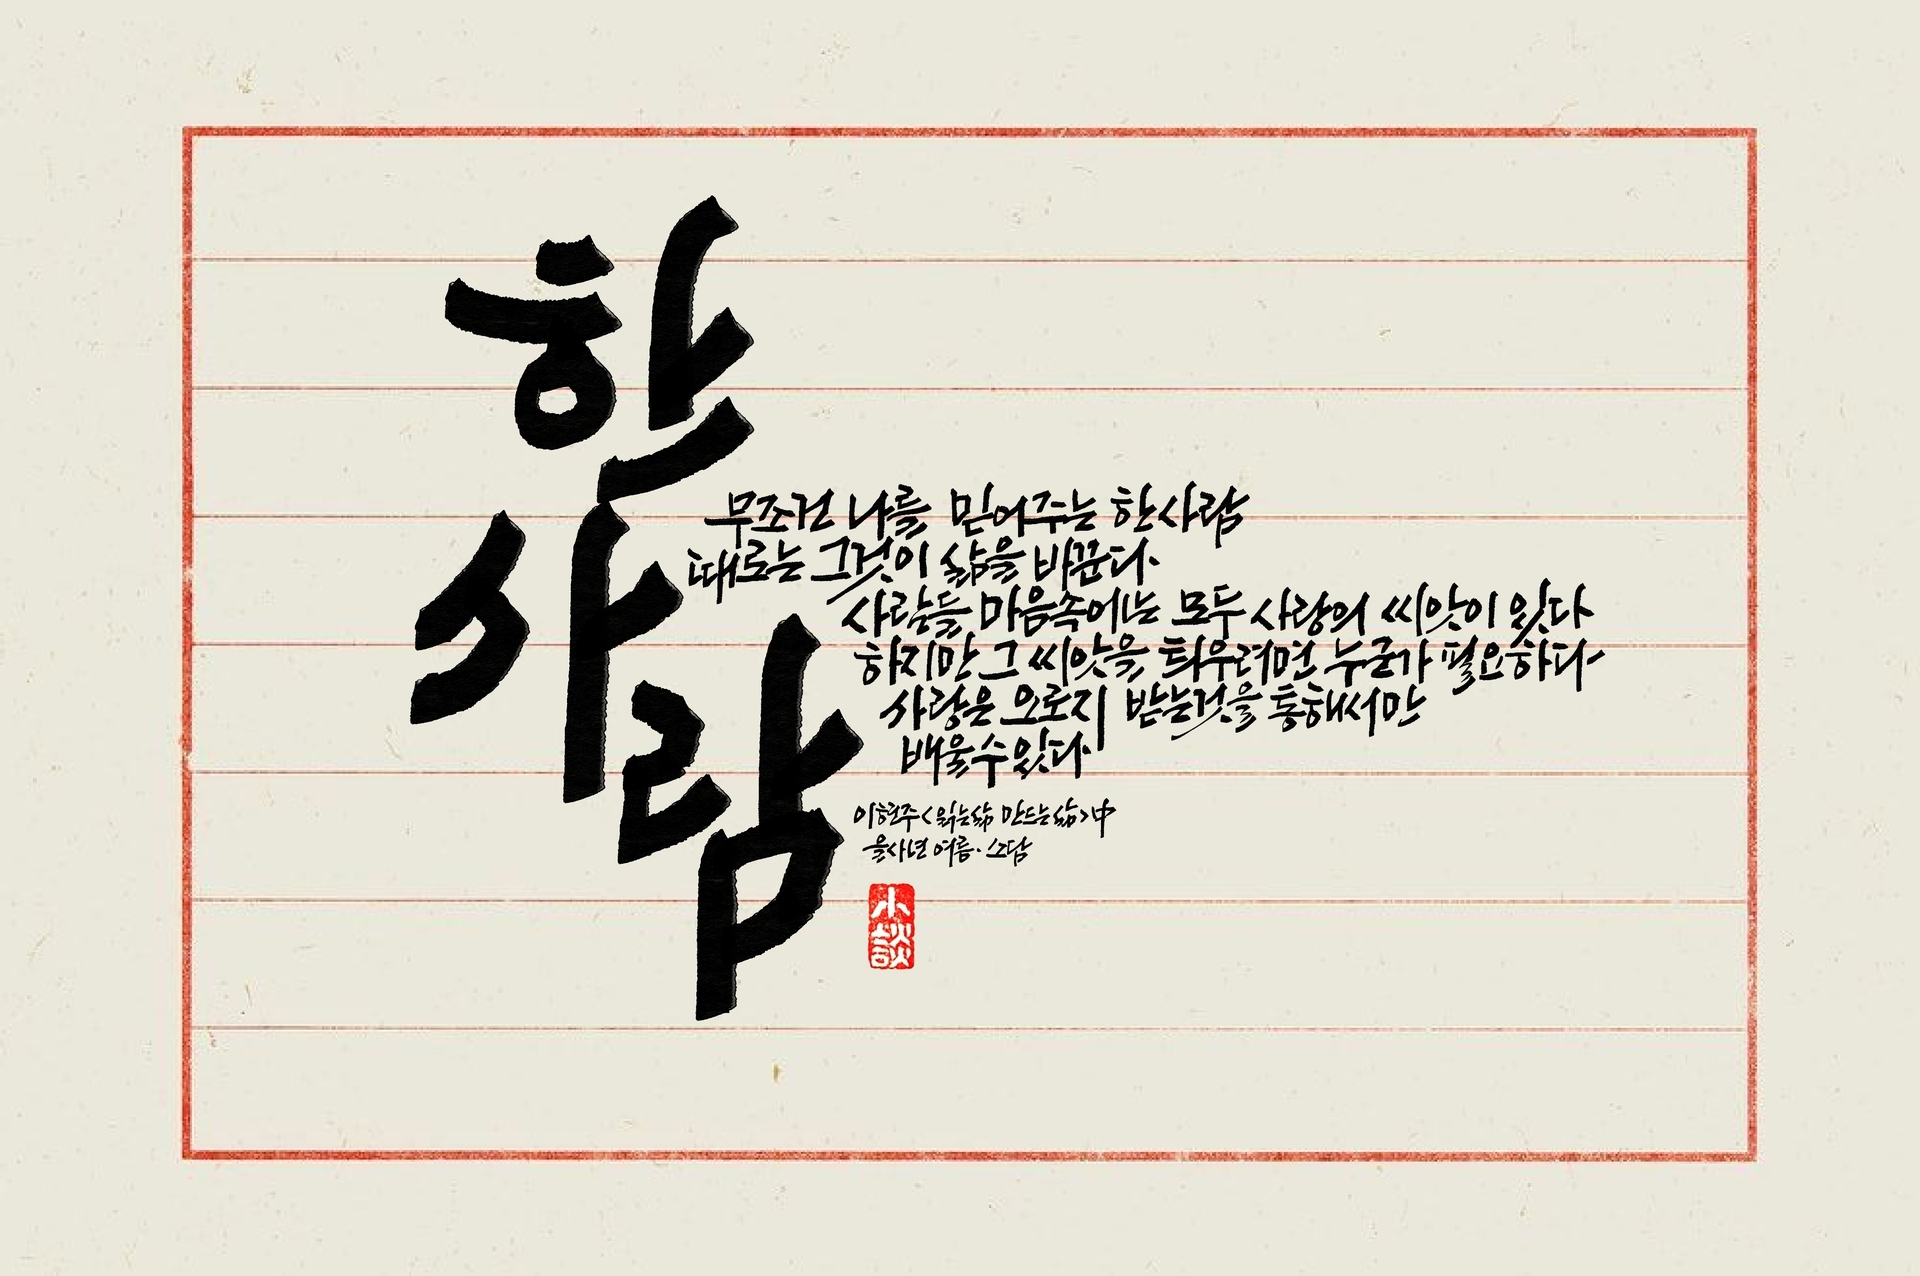 한
사
람
무조건 나를 믿어주는 한사람
때로는 그것이 삶을 바꾼다.
사람들 마음속에는 모두 사랑의 씨앗이 있다
하지만 그 씨앗을 틔우려면 누군가 필요하다
사랑은 오로지 받는것을 통해서만
배울수있다.
이현주<읽는삶 만드는삶>中
을사년 여름·소담
小談